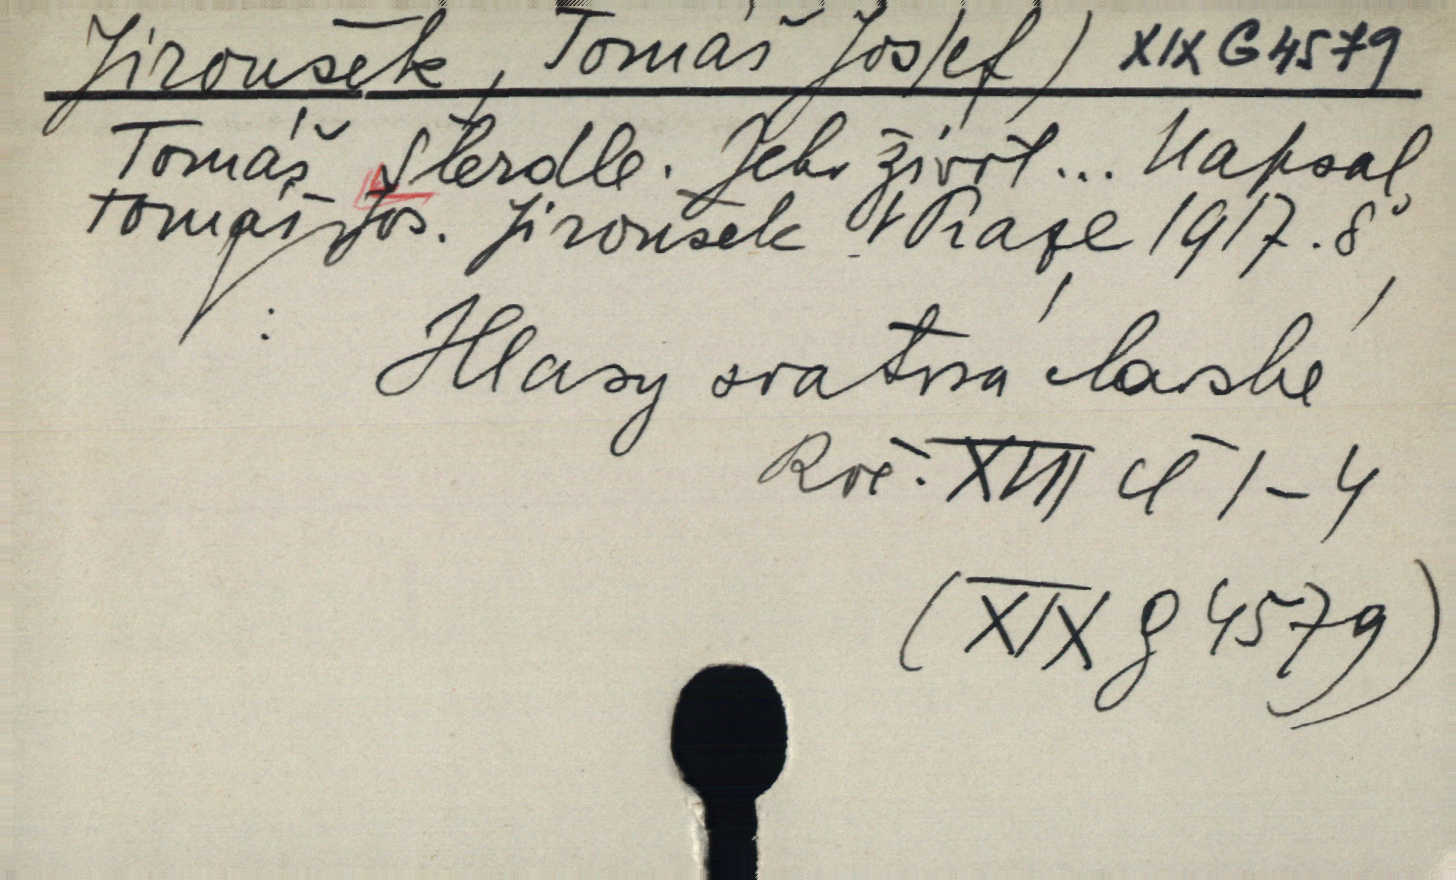 Jiroušek, Tomáš Jos/ef/ XIX G 4579
Tomáš Šterdle. Jeho život... Napsal
Tomáš Jos. Jiroušek V Praze 1917. 8°
: Hlasy svatováclavské
Roč. XIII čl 1-4
(XIX G 4579)